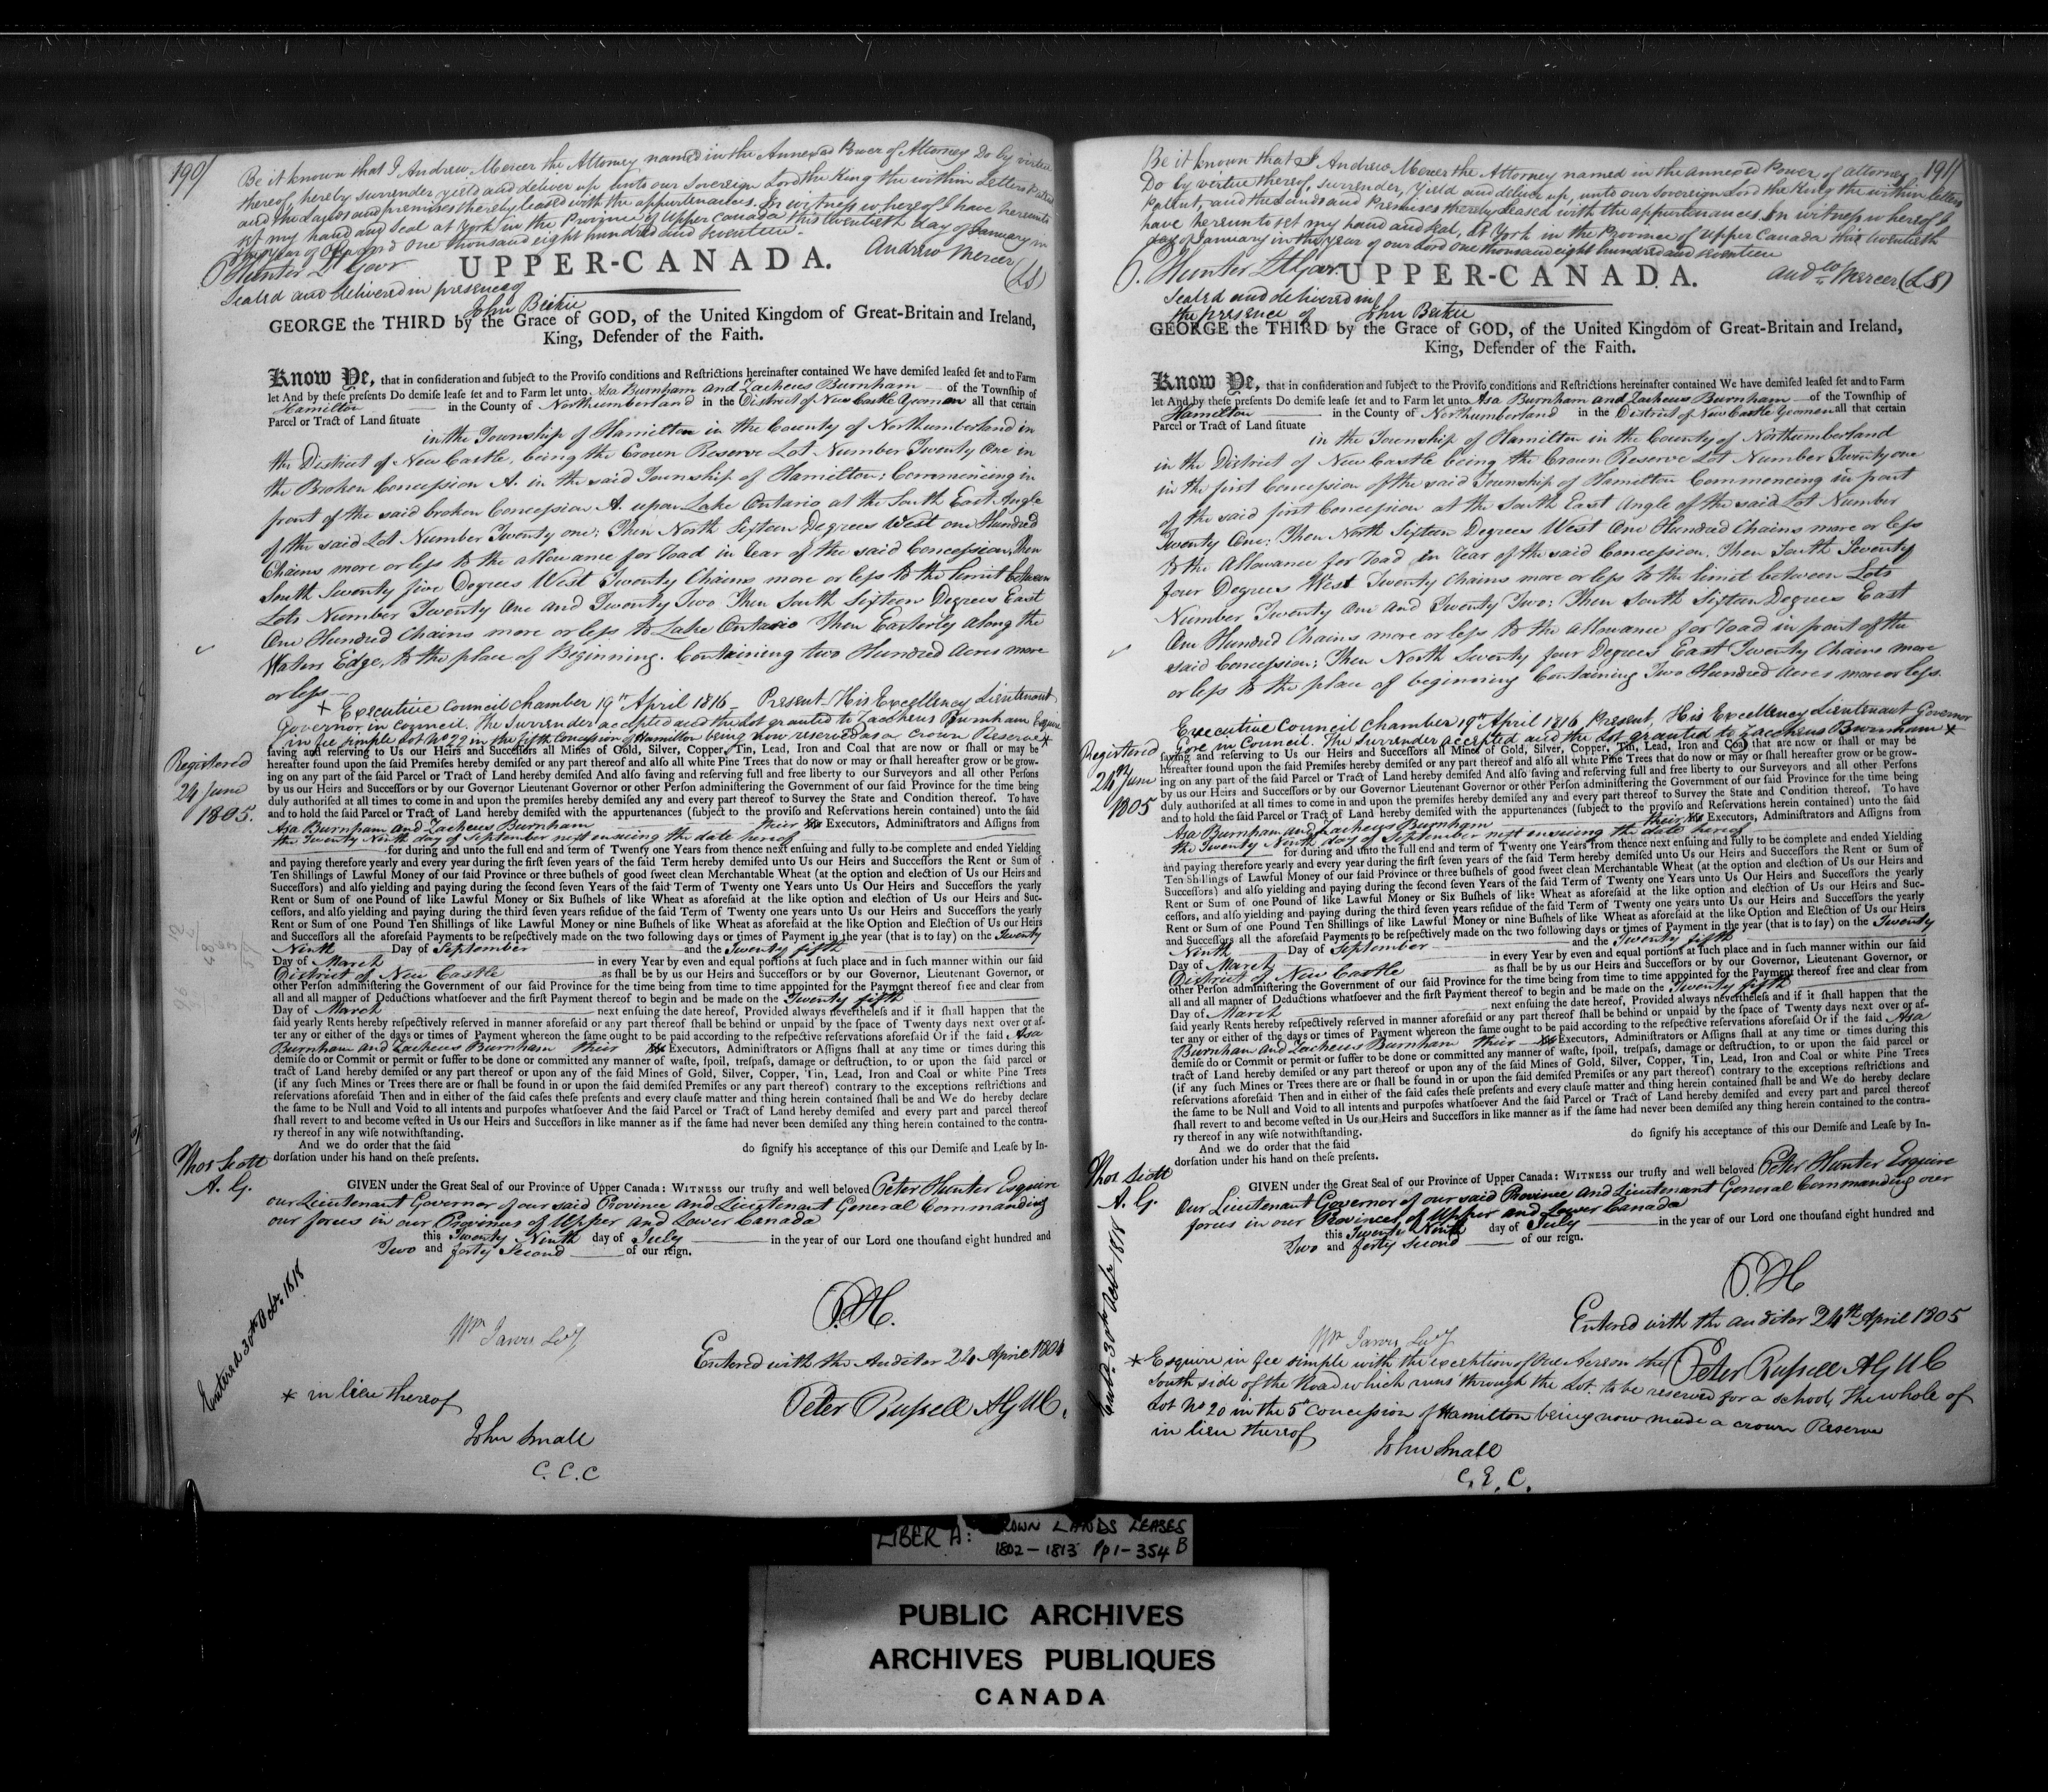 190/
Be it known that I Andrew Mercer the Attorney named in the Annexed Power of Attorney Do by virtue
thereof, hereby surrender, yield and deliver up unto our Sovereign Lord the King the within Letters Patent
and the Lands and premises thereby leased with the appurtenances. In witness whereof I have hereunto
set my hand and Seal at York in the Province of Upper Canada this twentieth day of January in
the year of Our Lord One thousand eight hundred and seventeen.
P Hunter Lt Govr
Andrew Mercer (LS)
UPPER-CANADA.
Sealed and delivered in presence of
John Beikie
GEORGE the THIRD by the Grace of GOD, of the United Kingdom of Great-Britain and Ireland,
King, Defender of the Faith.
Know Ye, that in consideration and subject to the Proviso conditions and Restrictions hereinafter contained We have demised leased set and to Farm
let And by these presents Do demise lease set and to Farm let unto Asa Burnham and Zacheus Burnham of the Township of
Hamilton in the County of Northumberland in the District of New Castle Yeoman all that certain
Parcel or Tract of Land situate
in the Township of Hamilton in the County of Northumberland in
the District of New Castle, being the Crown Reserve Lot Number Twenty One in
the Broken Concession A. in the said Township of Hamilton; Commencing in
front of the said broken Concession A. upon Lake Ontario at the South East Angle
of the said Lot Number Twenty one; Then North Sixteen Degrees West one Hundred
Chains more or less to the allowance for road in rear of the said Concession, Then
South Seventy five Degrees West Twenty Chains more or less to the limit between
Lots Number Twenty One and Twenty Two Then South Sixteen Degrees East
One Hundred Chains more or less to Lake Ontario Then Easterly along the
Waters Edge, to the place of Beginning. Containing two Hundred Acres more
or less
+ Executive Council Chamber 19th April 1816 Present His Excellency Lieutenant
Governor in Council. The Surrender accepted and the Lot granted to Zacheus Burnham Esquire
in fee simple Lot No 22 in the fifth Concession of Hamilton being now reserved as a Crown Reserve *
Registered
24 June
1805.
saving and reserving to Us our Heirs and Successors all Mines of Gold, Silver, Copper, Tin, Lead, Iron and Coal that are now or shall or may be
hereafter found upon the said Premises hereby demised or any part thereof and also all white Pine Trees that do now or may or shall hereafter grow or be grow-
ing on any part of the said Parcel or Tract of Land hereby demised And also saving and reserving full and free liberty to our Surveyors and all other Persons
by us our Heirs and Successors or by our Governor Lieutenant Governor or other Person administering the Government of our said Province for the time being
duly authorised at all times to come in and upon the premises hereby demised any and every part thereof to Survey the State and Condition thereof. To have
and to hold the said Parcel or Tract of Land hereby demised with the appurtenances (subject to the proviso and Reservations herein contained) unto the said
Asa Burnham and Zacheus Burnham their his Executors, Administrators and Assigns from
the Twenty Ninth day of September next ensuing the date hereof
for during and unto the full end and term of Twenty one Years from thence next ensuing and fully to be complete and ended Yielding
and paying therefore yearly and every year during the first seven years of the said Term hereby demised unto Us our Heirs and Successors the Rent or Sum of
Ten Shillings of Lawful Money of our said Province or three bushels of good sweet clean Merchantable Wheat (at the option and election of Us our Heirs and
Successors) and also yielding and paying during the second seven Years of the said Term of Twenty one Years unto Us Our Heirs and Successors the yearly
Rent or Sum of one Pound of like Lawful Money or Six Bushels of like Wheat as aforesaid at the like option and election of Us our Heirs and Suc-
cessors, and also yielding and paying during the third seven years residue of the said Term of Twenty one years unto Us our Heirs and Successors the yearly
Rent or Sum of one Pound Ten Shillings of like Lawful Money or nine Bushels of like Wheat as aforesaid at the like Option and Election of Us our Heirs
and Successors all the aforesaid Payments to be respectively made on the two following days or times of Payment in the year (that is to say) on the Twenty
Ninth Day of September and the Twenty fifth
Day of March in every Year by even and equal portions at such place and in such manner within our said
District of New Castle as shall be by us our Heirs and Successors or by our Governor, Lieutenant Governor, or
other Person administering the Government of our said Province for the time being from time to time appointed for the Payment thereof free and clear from
all and all manner of Deductions whatsoever and the first Payment thereof to begin and be made on the Twenty fifth
Day of March next ensuing the date hereof, Provided always nevertheless and if it shall happen that the
said yearly Rents hereby respectively reserved in manner aforesaid or any part thereof shall be behind or unpaid by the space of Twenty days next over or af-
ter any or either of the days or times of Payment whereon the same ought to be paid according to the respective reservations aforesaid Or if the said Asa
Burnham and Zacheus Burnham their his Executors, Administrators or Assigns shall at any time or times during this
demise do or Commit or permit or suffer to be done or committed any manner of waste, spoil, trespass, damage or destruction, to or upon the said parcel or
tract of Land hereby demised or any part thereof or upon any of the said Mines of Gold, Silver, Copper, Tin, Lead, Iron and Coal or white Pine Trees
(if any such Mines or Trees there are or shall be found in or upon the said demised Premises or any part thereof) contrary to the exceptions restrictions and
reservations aforesaid Then and in either of the said cases these presents and every clause matter and thing herein contained shall be and We do hereby declare
the same to be Null and Void to all intents and purposes whatsoever And the said Parcel or Tract of Land hereby demised and every part and parcel thereof
shall revert to and become vested in Us our Heirs and Successors in like manner as if the same had never been demised any thing herein contained to the contra-
ry thereof in any wise notwithstanding.
And we do order that the said do signify his acceptance of this our Demise and Lease by In-
dorsation under his hand on these presents.
Thos Scott
A. G.
GIVEN under the Great Seal of our Province of Upper Canada: WITNESS our trusty and well beloved Peter Hunter Esquire
our Lieutenant Governor of our said Province and Lieutenant General Commanding
our forces in our Provinces of Upper and Lower Canada
this Twenty Ninth day of July in the year of our Lord one thousand eight hundred and
Two and forty Second of our reign.
Entered 30th Octr. 1818
P.H.
Wm Jarvis Secy
Entered with the Auditor 24 April 1805
* in lieu thereof
Peter Russell A G U C.
John Small
C. E. C
191/
Be it known that I Andrew Mercer the Attorney named in the annexed Power of attorney
Do by virtue thereof, surrender, yield and deliver up, unto our Sovereign Lord the King the within letters
Patent, and the Lands and Premises thereby leased with the appurtenances. In witness whereof I
have hereunto set my hand and seal, at York in the Province of Upper Canada this twentieth
day of January in the year of our Lord One thousand eight hundred and seventeen
P. Hunter Lt Govr
UPPER-CANADA.
Andw Mercer (LS)
Sealed and delivered in
the presence of John Beikie
GEORGE the THIRD by the Grace of GOD, of the United Kingdom of Great-Britain and Ireland,
King, Defender of the Faith.
Know Ye, that in consideration and subject to the Proviso conditions and Restrictions hereinafter contained We have demised leased set and to Farm
let And by these presents Do demise lease set and to Farm let unto Asa Burnham and Zacheus Burnham of the Township of
Hamilton in the County of Northumberland in the District of New Castle Yeoman all that certain
Parcel or Tract of Land situate
in the Township of Hamilton in the County of Northumberland
in the District of New Castle being the Crown Reserve Lot Number Twenty one
in the first Concession of the said Township of Hamilton Commencing in front
of the said first Concession at the South East Angle of the said Lot Number
Twenty One; Then North Sixteen Degrees West One Hundred Chains more or less
to the Allowance for road in rear of the said Concession. Then South Seventy
four Degrees West Twenty Chains more or less to the limit between Lots
Number Twenty One and Twenty Two; Then South Sixteen Degrees East
One Hundred Chains more or less to the allowance for road in front of the
said Concession; Then North Seventy four Degrees East Twenty Chains more
or less to the place of beginning Containing Two Hundred Acres more or less.
Executive Council Chamber 19th April 1816, Present, His Excellency Lieutenant Governor
Gore in Council. The Surrender accepted and the Lot granted to Zaccheus Burnham *
Registered
24th June
1805
saving and reserving to Us our Heirs and Successors all Mines of Gold, Silver, Copper, Tin, Lead, Iron and Coal that are now or shall or may be
hereafter found upon the said Premises hereby demised or any part thereof and also all white Pine Trees that do now or may or shall hereafter grow or be grow-
ing on any part of the said Parcel or Tract of Land hereby demised And also saving and reserving full and free liberty to our Surveyors and all other Persons
by us our Heirs and Successors or by our Governor Lieutenant Governor or other Person administering the Government of our said Province for the time being
duly authorised at all times to come in and upon the premises hereby demised any and every part thereof to Survey the State and Condition thereof. To have
and to hold the said Parcel or Tract of Land hereby demised with the appurtenances (subject to the proviso and Reservations herein contained) unto the said
Asa Burnham and Zacheus Burnham their his Executors, Administrators and Assigns from
the Twenty Ninth day of September next ensuing the date hereof
for during and unto the full end and term of Twenty one Years from thence next ensuing and fully to be complete and ended Yielding
and paying therefore yearly and every year during the first seven years of the said Term hereby demised unto Us our Heirs and Successors the Rent or Sum of
Ten Shillings of Lawful Money of our said Province or three bushels of good sweet clean Merchantable Wheat (at the option and election of Us our Heirs and
Successors) and also yielding and paying during the second seven Years of the said Term of Twenty one Years unto Us Our Heirs and Successors the yearly
Rent or Sum of one Pound of like Lawful Money or Six Bushels of like Wheat as aforesaid at the like option and election of Us our Heirs and Suc-
cessors, and also yielding and paying during the third seven years residue of the said Term of Twenty one years unto Us our Heirs and Successors the yearly
Rent or Sum of one Pound Ten Shillings of like Lawful Money or nine Bushels of like Wheat as aforesaid at the like Option and Election of Us our Heirs
and Successors all the aforesaid Payments to be respectively made on the two following days or times of Payment in the year (that is to say) on the Twenty
Ninth Day of September and the Twenty fifth
Day of March in every Year by even and equal portions at such place and in such manner within our said
District of New Castle as shall be by us our Heirs and Successors or by our Governor, Lieutenant Governor, or
other Person administering the Government of our said Province for the time being from time to time appointed for the Payment thereof free and clear from
all and all manner of Deductions whatsoever and the first Payment thereof to begin and be made on the Twenty fifth
Day of March next ensuing the date hereof, Provided always nevertheless and if it shall happen that the
said yearly Rents hereby respectively reserved in manner aforesaid or any part thereof shall be behind or unpaid by the space of Twenty days next over or af-
ter any or either of the days or times of Payment whereon the same ought to be paid according to the respective reservations aforesaid Or if the said Asa
Burnham and Zacheus Burnham their his Executors, Administrators or Assigns shall at any time or times during this
demise do or Commit or permit or suffer to be done or committed any manner of waste, spoil, trespass, damage or destruction, to or upon the said parcel or
tract of Land hereby demised or any part thereof or upon any of the said Mines of Gold, Silver, Copper, Tin, Lead, Iron and Coal or white Pine Trees
(if any such Mines or Trees there are or shall be found in or upon the said demised Premises or any part thereof) contrary to the exceptions restrictions and
reservations aforesaid Then and in either of the said cases these presents and every clause matter and thing herein contained shall be and We do hereby declare
the same to be Null and Void to all intents and purposes whatsoever And the said Parcel or Tract of Land hereby demised and every part and parcel thereof
shall revert to and become vested in Us our Heirs and Successors in like manner as if the same had never been demised any thing herein contained to the contra-
ry thereof in any wise notwithstanding.
And we do order that the said do signify his acceptance of this our Demise and Lease by In-
dorsation under his hand on these presents.
Thos Scott
A. G.
GIVEN under the Great Seal of our Province of Upper Canada: WITNESS our trusty and well beloved Peter Hunter Esquire
Our Lieutenant Governor of our said Province and Lieutenant General Commanding our
forces in our Provinces of Upper and Lower Canada
this Twenty Ninth day of July in the year of our Lord one thousand eight hundred and
Two and forty second of our reign.
Entd. 30th Octr 1818
P.H
Entered with the auditor 24th April 1805
Wm Jarvis Secy
Peter Russell A G U C
* Esquire in fee simple with the exception of One Acre on the
South side of the Road which runs through the Lot to be reserved for a school, the whole of
Lot No 20 in the 5th Concession of Hamilton being now made a crown Reserve
in lieu thereof
John Small
C. E. C.
LIBER A: CROWN LANDS LEASES
1802-1813 Pp 1-354 B
PUBLIC ARCHIVES
ARCHIVES PUBLIQUES
CANADA